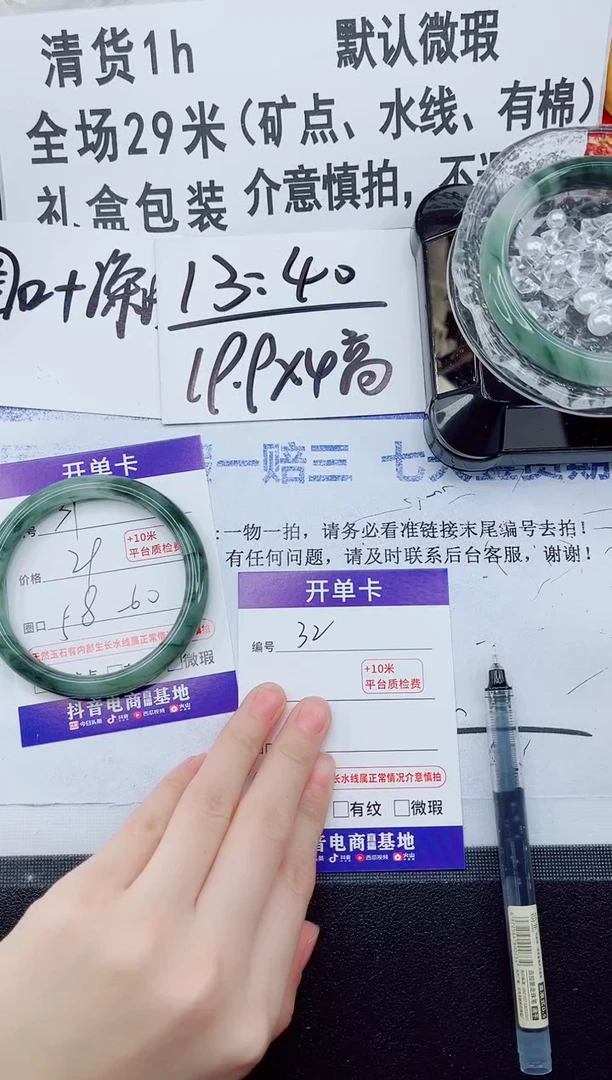 清货1h 默认微瑕
全场29米(矿点、水线、有棉)
礼盒包装 介意慎拍，不
13:40
19.9x4高
一赔三 七天
:一物一拍，请务必看准链接末尾编号去拍！
有任何问题，请及时联系后台客服，谢谢！
开单卡
号 31
+10米
平台质检费
价格 21
圈口 58-60
天然玉石有内部生长水线属正常情
微瑕
抖音电商直播基地
今日头条 抖音 西瓜视频 火山
开单卡
编号 32
+10米
平台质检费
长水线属正常情况介意慎拍
□有纹 □微瑕
音电商直播基地
头条 抖音 西瓜视频 火山